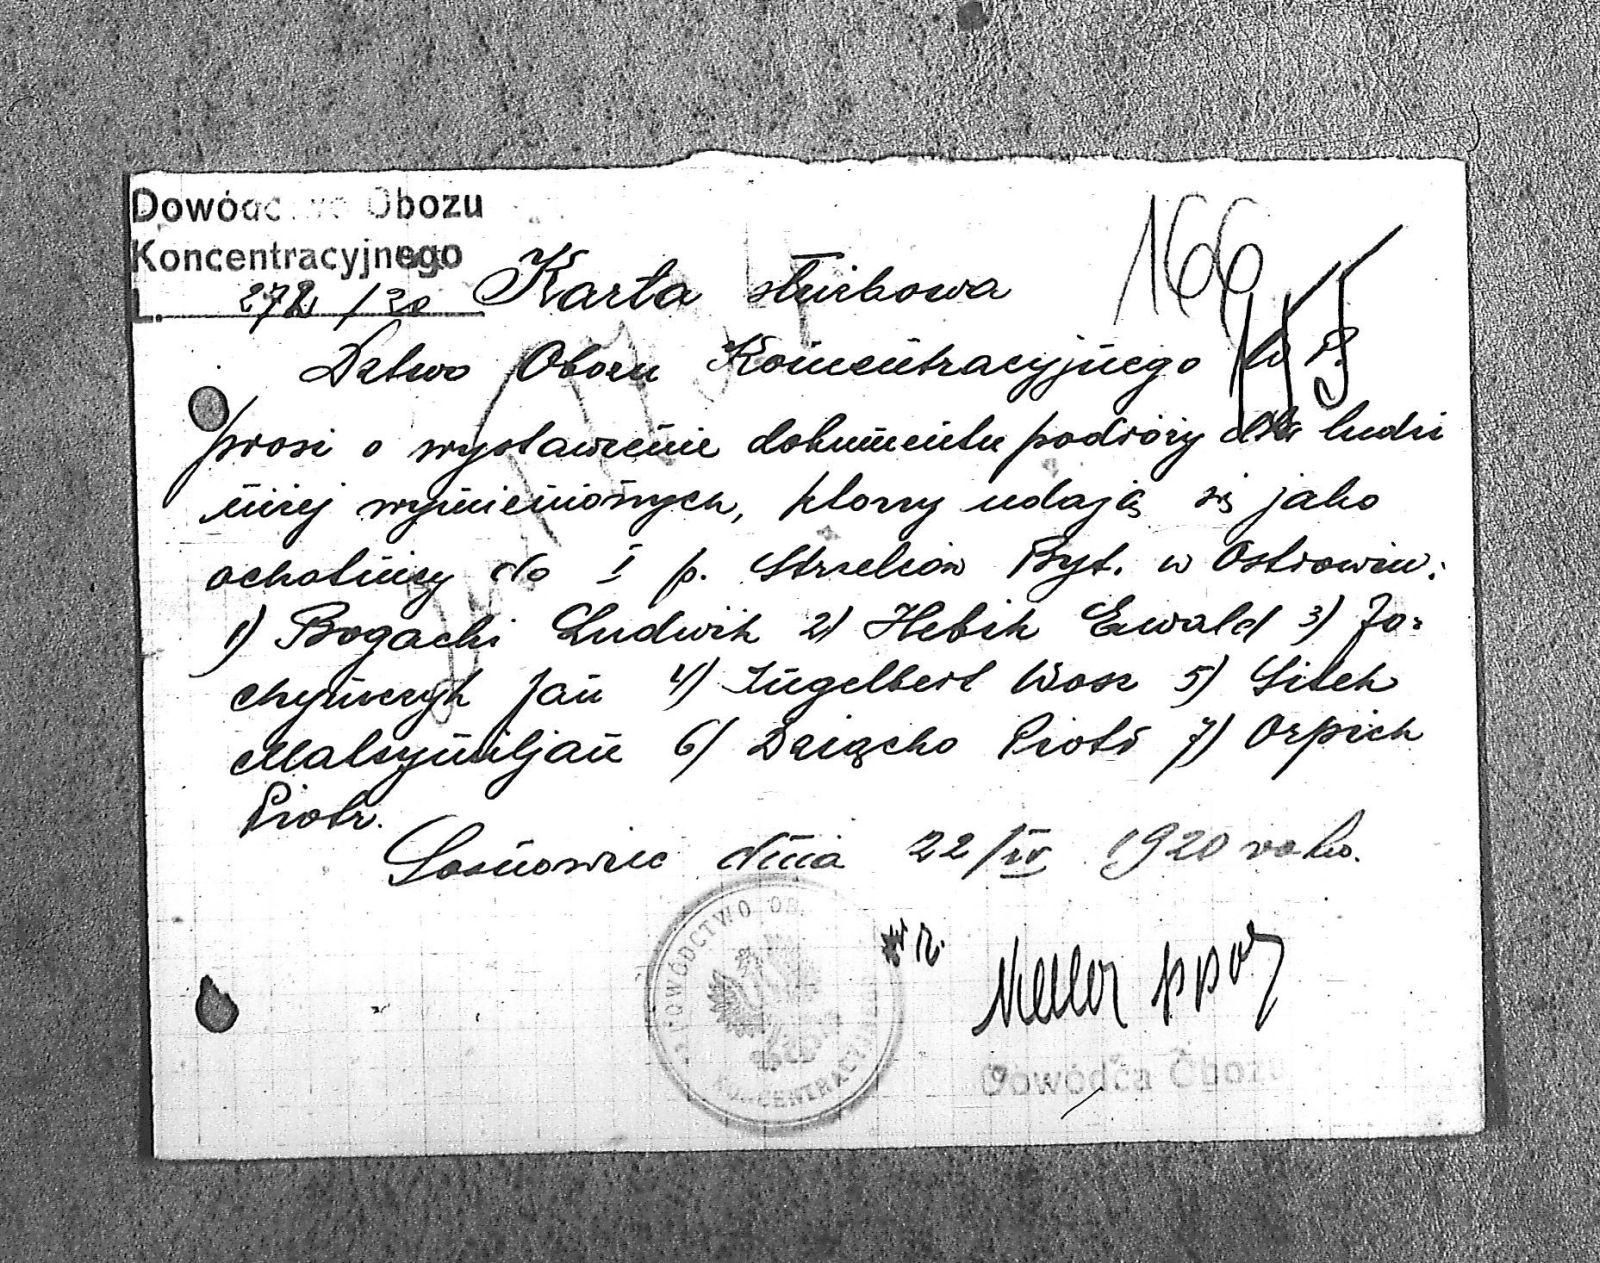 Dowódctwo Obozu
Koncentracyjnego
L. 272/20 Karta służbowa
166
Dztwo Obozu Koncentracyjnego w P.
prosi o wystawienie dokumentu podróży dla ludzi
niżej wymienionych, którzy udają się jako
ochotnicy do I p. Strzelców Byt. w Ostrowiu:
1) Bogacki Ludwik 2) Hebik Ewald 3) Jo-
chymczyk Jan 4) Engelbert Wosz 5) Sitek
Maksymiljan 6) Dziącko Piotr 7) Orpich
Piotr.
Sosnowiec dnia 22/IV 1920 roku.
DOWÓDCTWO OB
KONCENTRACYJNEGO
ppor
Dowódca Obozu